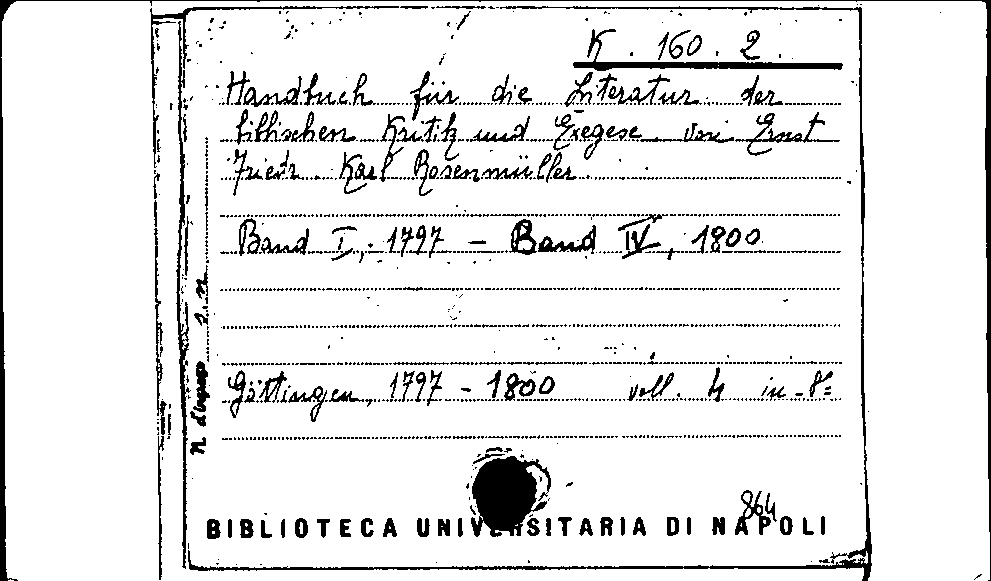 K. 160. 2.
Handbuch für die Literatur der
biblischen Kritik und Exegese von Ernst
Friedr. Karl Rosenmüller.
Band I, 1797 – Band IV, 1800
Göttingen, 1797 - 1800 voll. 4 in-8º
N. d'ingresso s. n.
864
BIBLIOTECA UNIVERSITARIA DI NAPOLI